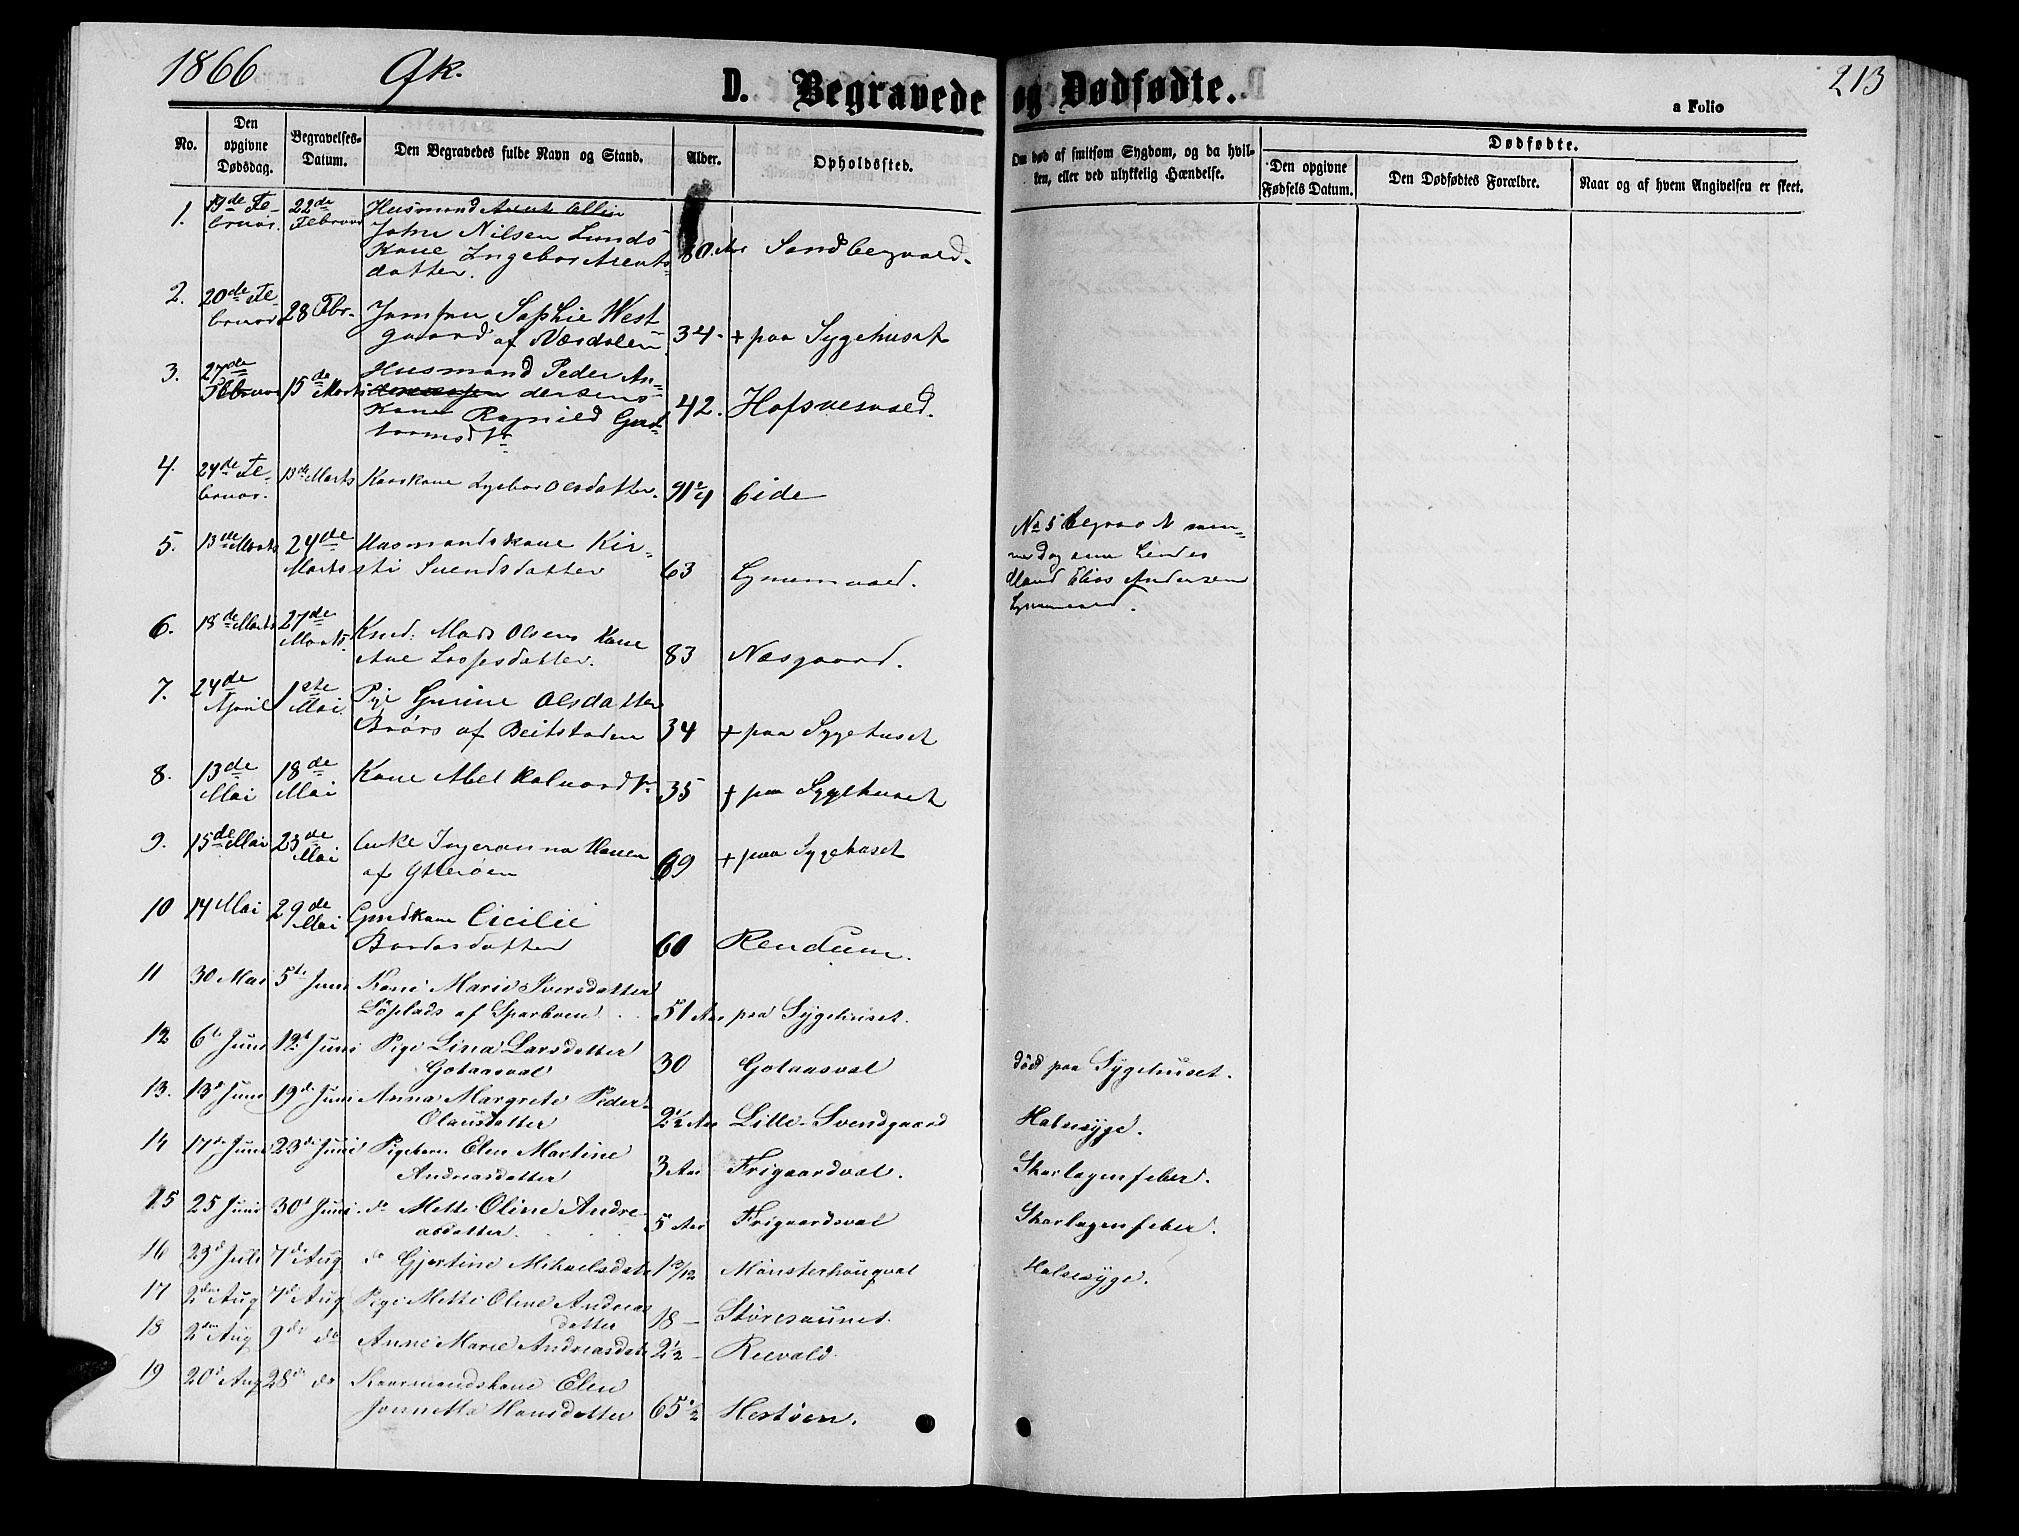 1866 Qk. D. Begravede og Dødfødte. 213
a Folio
No. Den opgivne Dødsdag. Begravelses-Datum. Den Begravedes fulde Navn og Stand. Alder. Opholdssted. Om død af smitsom Sygdom, og da hvilken, eller ved ulykkelig Hændelse. Dødfødte.
Den opgivne Fødsels Datum. Den Dødfødtes Forældre. Naar og af hvem Angivelsen er skeet.
1. 19de Fe- 22de Husmand
bruar. Februar John Nilsen Lunds
Kone Ingebor Arents- 80. Aar Sandbergvald.
datter.
2. 20de Fe- 28 Febr. Jomfru Sophie West-
bruar gaard af Værdalen 34. + paa Sygehuset
3. 27de Husmand Peder An-
Februar 15de Marts dersens
Kone Ragnild Gut- 42. Hofsvesvald.
tormsdtr
4. 24de Fe- 13de Marts Kaarkone Ingebor Olsdatter. 91 Eide
bruar.
5. 13de Marts 24de Husmandskone Kir- No 5 begravet sam-
Marts sti Svendsdatter 63 Lynumvald. me Dag som hendes
Mand Elias Andersen
Lynumvald.
6. 18de Marts 27de
Marts. Mads Olsens Kone
Ane 83 Næsgaard.
7. 24de 1ste Pige Gurine Olsdatter
April Mai Brørs af Beitstaden 34 + paa Sygehuset
8. 13de 18de Kone Abel Halvordtr
Mai Mai 35 + paa Sygehuset
9. 15de Mai 23de Enke Ingeranna Hauen
Mai af Ytterøen 69 + paa Sygehuset
10 14 Mai 29de Gaardkone Cicilie
Mai Bardosdatter 60 Rendum.
11 30 Mai 5te Juni Kone Marie Iversdatter
Löplads af Sparboen 51 Aar paa Sygehuset.
12 6te Juni 12t Juni Pige Lina Larsdatter
Gotaasval 30 Gotaasval död paa Sygehuset.
13. 13d Juni 19de Juni Anna Margrete Peder-
Olausdatter 2½ Aar Lille-Svendgaard Halssyge.
14 17de Juni 23de Juni Pigebarn Elen Martine
Andreasdatter 3 Aar Frigaardval. Skarlagensfeber.
15 25 Juni 30t Juni. do Mette Oline Andre-
asdatter. 5 Aar Frigaardsval Skarlagensfeber.
16 29d Juli 7de Aug do Gjertine Mikaelsdatr Mønsterhougval Halssyge.
17 2den Aug 7de Aug Pige Mette Oline Andreas
datter 18 - Støresaunet.
18 2den Aug 9de do Anne Marie Andreasdatr 2½ - Reevald.
19 20d Aug 28de do Kaarmandskone Elen
Jonnetta Hansdatter 65½ Hestøen.